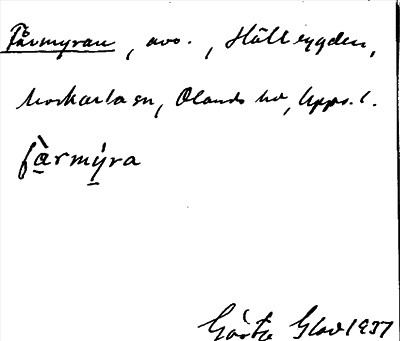 Fårmyran, avs., Hällbygden,
Morkarla sn, Olands hd, Upps. l.
fàrmýra
Gösta Glad 1937